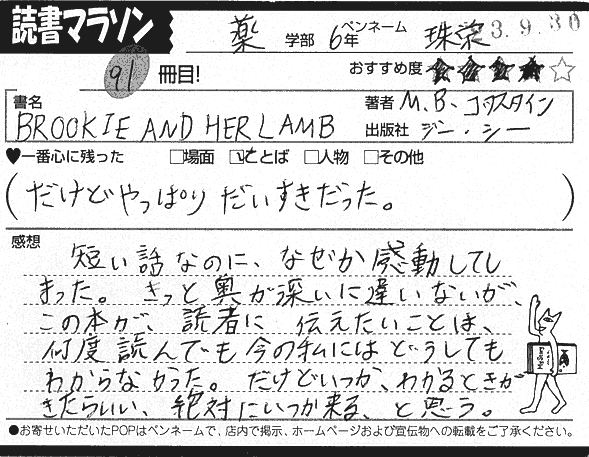 読書マラソン
薬 学部 6年 ペンネーム 珠栄
3.9.30
91 冊目! おすすめ度 ★★★★☆
書名 BROOKIE AND HER LAMB
著者 M.B.ゴフスタイン
出版社 ジー・シー
♥一番心に残った □場面 ☑ことば □人物 □その他
(だけどやっぱり だいすきだった。)
感想
短い話なのに、なぜか感動してし
まった。きっと奥が深いに違いないが、
この本が、読者に 伝えたいことは、
何度読んでも今の私にはどうしても
わからなかった。だけどいつか、わかるときが
きたらいい、絶対にいつか来る、と思う。
●お寄せいただいたPOPはペンネームで、店内で掲示、ホームページおよび宣伝物への転載をご了承ください。